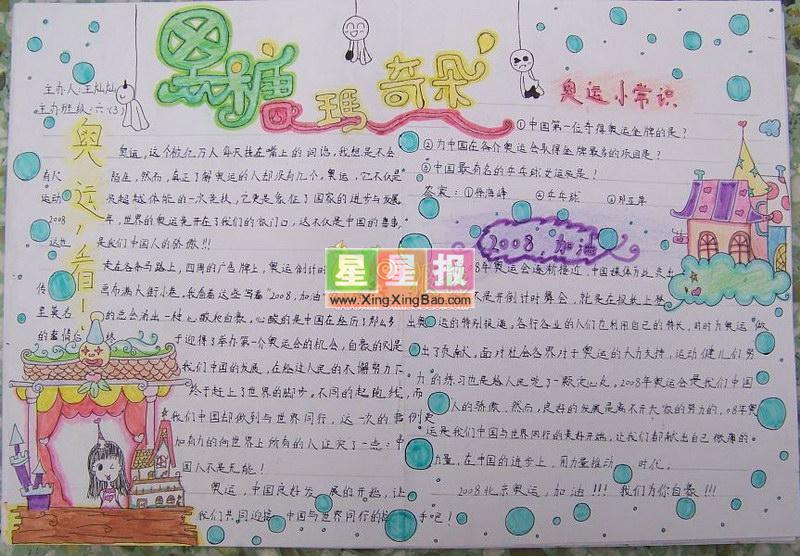 黑糖
瑪奇朵
主办人:王灿灿
主办班级:六(3)
奥运,看
奥运,这个被亿万人每天挂在嘴上的词语,我想是不会
有人陌生。然而,真正了解奥运的人却没有几个。奥运,它不仅是
运动
2008年,世界的奥运竟开在了我们的家门口,这不仅是中国的喜事,
这也是我们中国人的骄傲!!!
走在各条马路上,四周的广告牌上,奥运倒计时
画布满大街小巷。我自看这些写着"2008,加油
于迎得了举办第一个奥运会的机会,自豪的则是
我们中国的发展,在经过人民的不懈努力下
终于赶上了世界的脚步。不同的起跑线,而
我们中国却做到与世界同行,这一次的
国人不是无能!
奥运,中国良好发展的开始,让
我们共同迎接中国与世界同行的
手吧!
奥运小常识
①中国第一位夺得奥运金牌的是?
②为中国在各个奥运会取得金牌最多的项目是?
③中国最有名的乒乓球运动员是?
答案:①许海峰 ②乒乓球 ③邓亚萍
2008 加油
08年奥运会逐渐接近,中国媒体为此
不是开倒计时舞会,就是在报纸上登
出奥运的特别报道。各行各业的人们在利用自己的特长,时时为奥运做
出了贡献。面对社会各界对于奥运的大力支持,运动健儿们努
力的练习也是给人民吃了一颗定心丸。2008年奥运会是我们中国
人的骄傲。然而,良好的发展是离不开大家的努力的,08年奥
运是我们中国与世界同行的美好开端,让我们都献出自己微薄的
力量,在中国的进步上,用力量推动时代。
2008北京奥运,加油!!!我们为你自豪!!!
星星报
www.XingXingBao.com